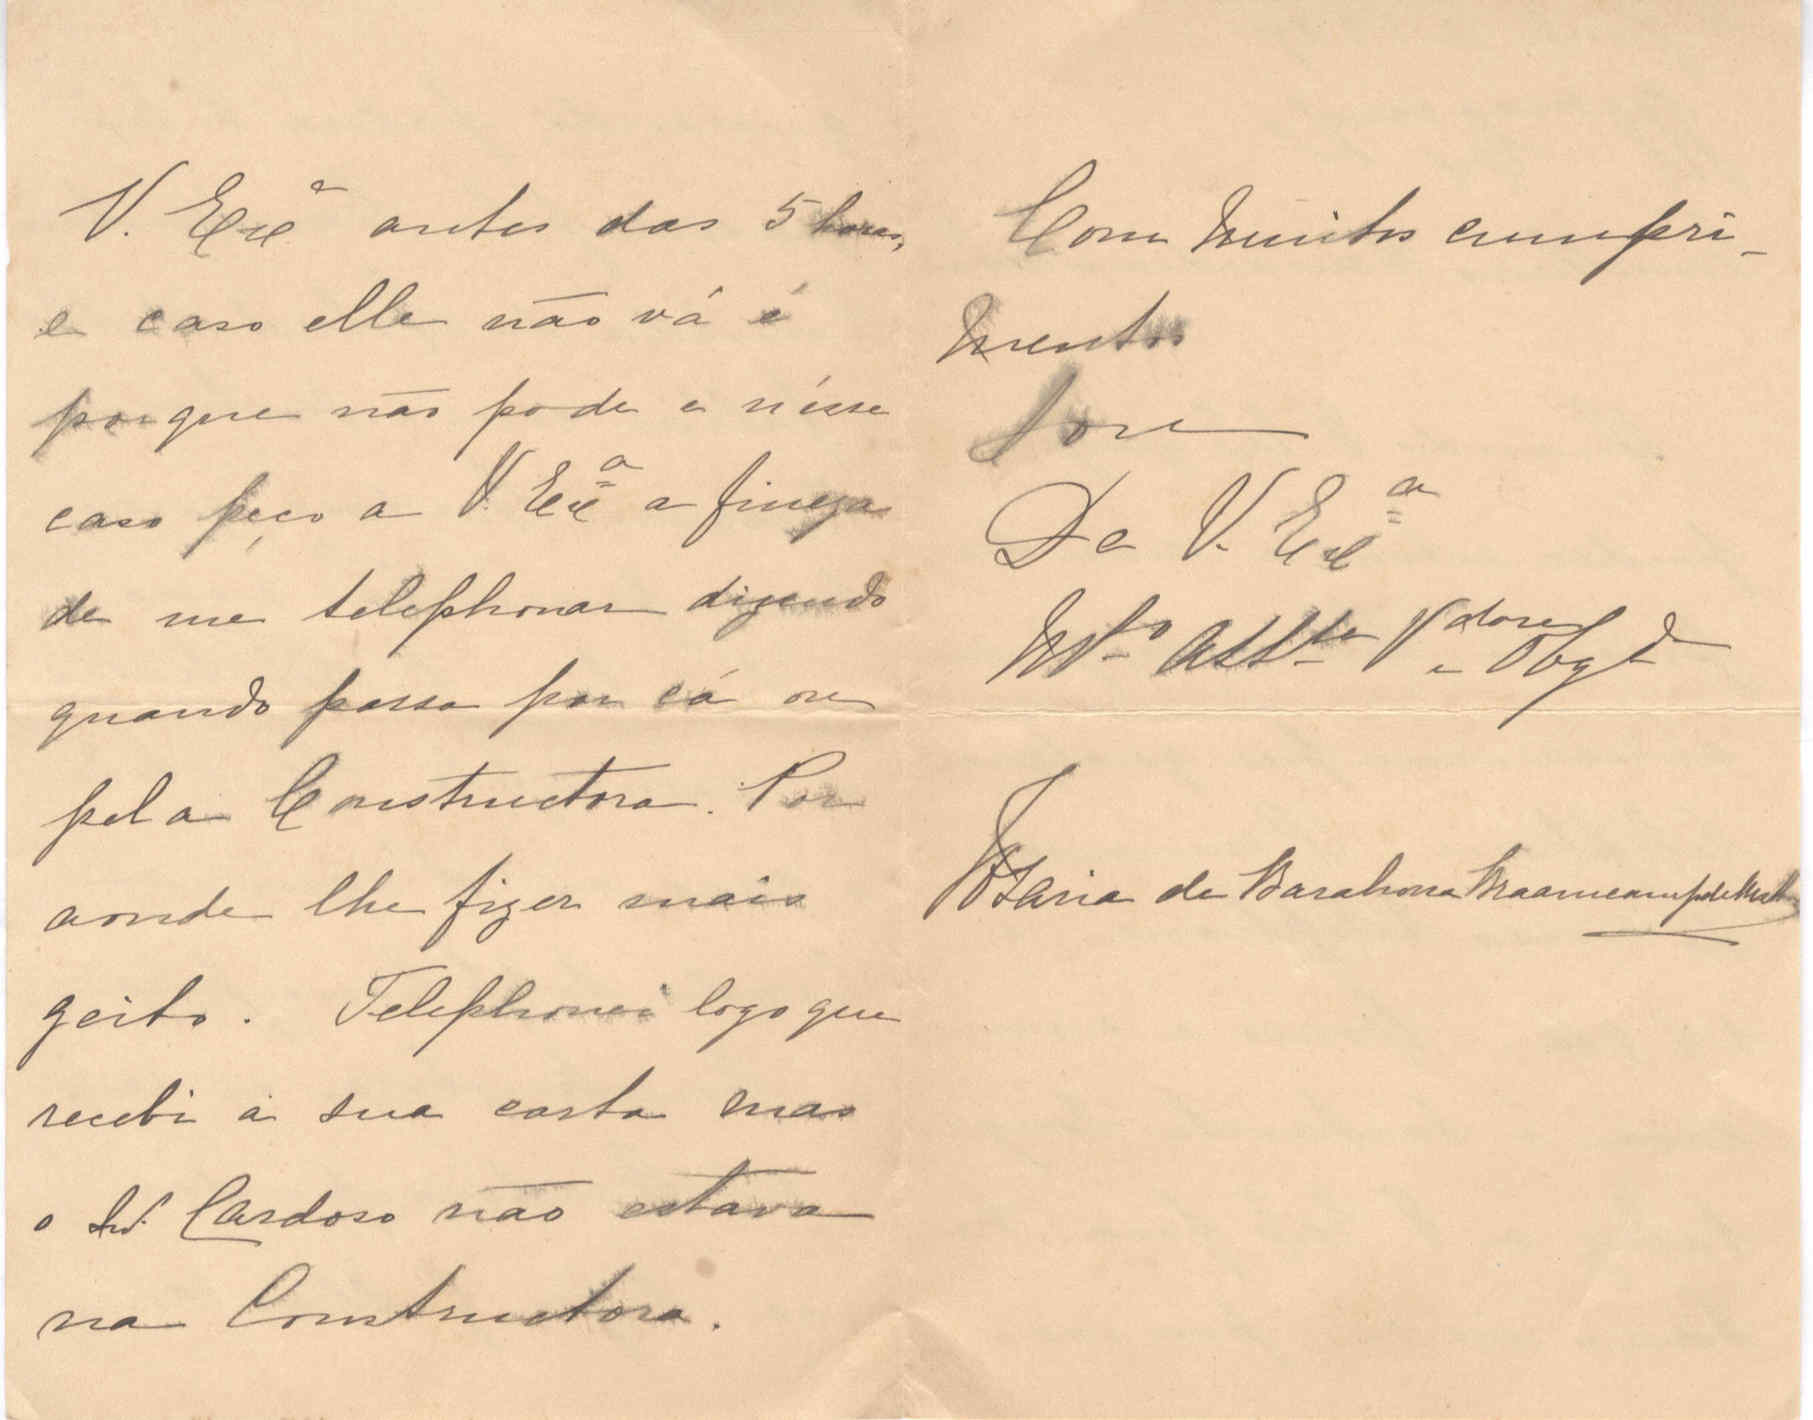 V. Exª antes das 5 horas,
e caso elle não vá é
porque não pode e n'esse
caso peço a V. Exª a fineza
de me telephonar dizendo
quando passa por cá ou
pela Constructora. Por
aonde lhe fizer mais
geito. Telephonei logo que
recebi a sua carta mas
o Snr. Cardoso não estava
na Constructora.
Com muitos cumpri-
mentos
sou
De V. Exª
Mto Attta Vdora e Obgda
Maria de Barahona Braamcamp de